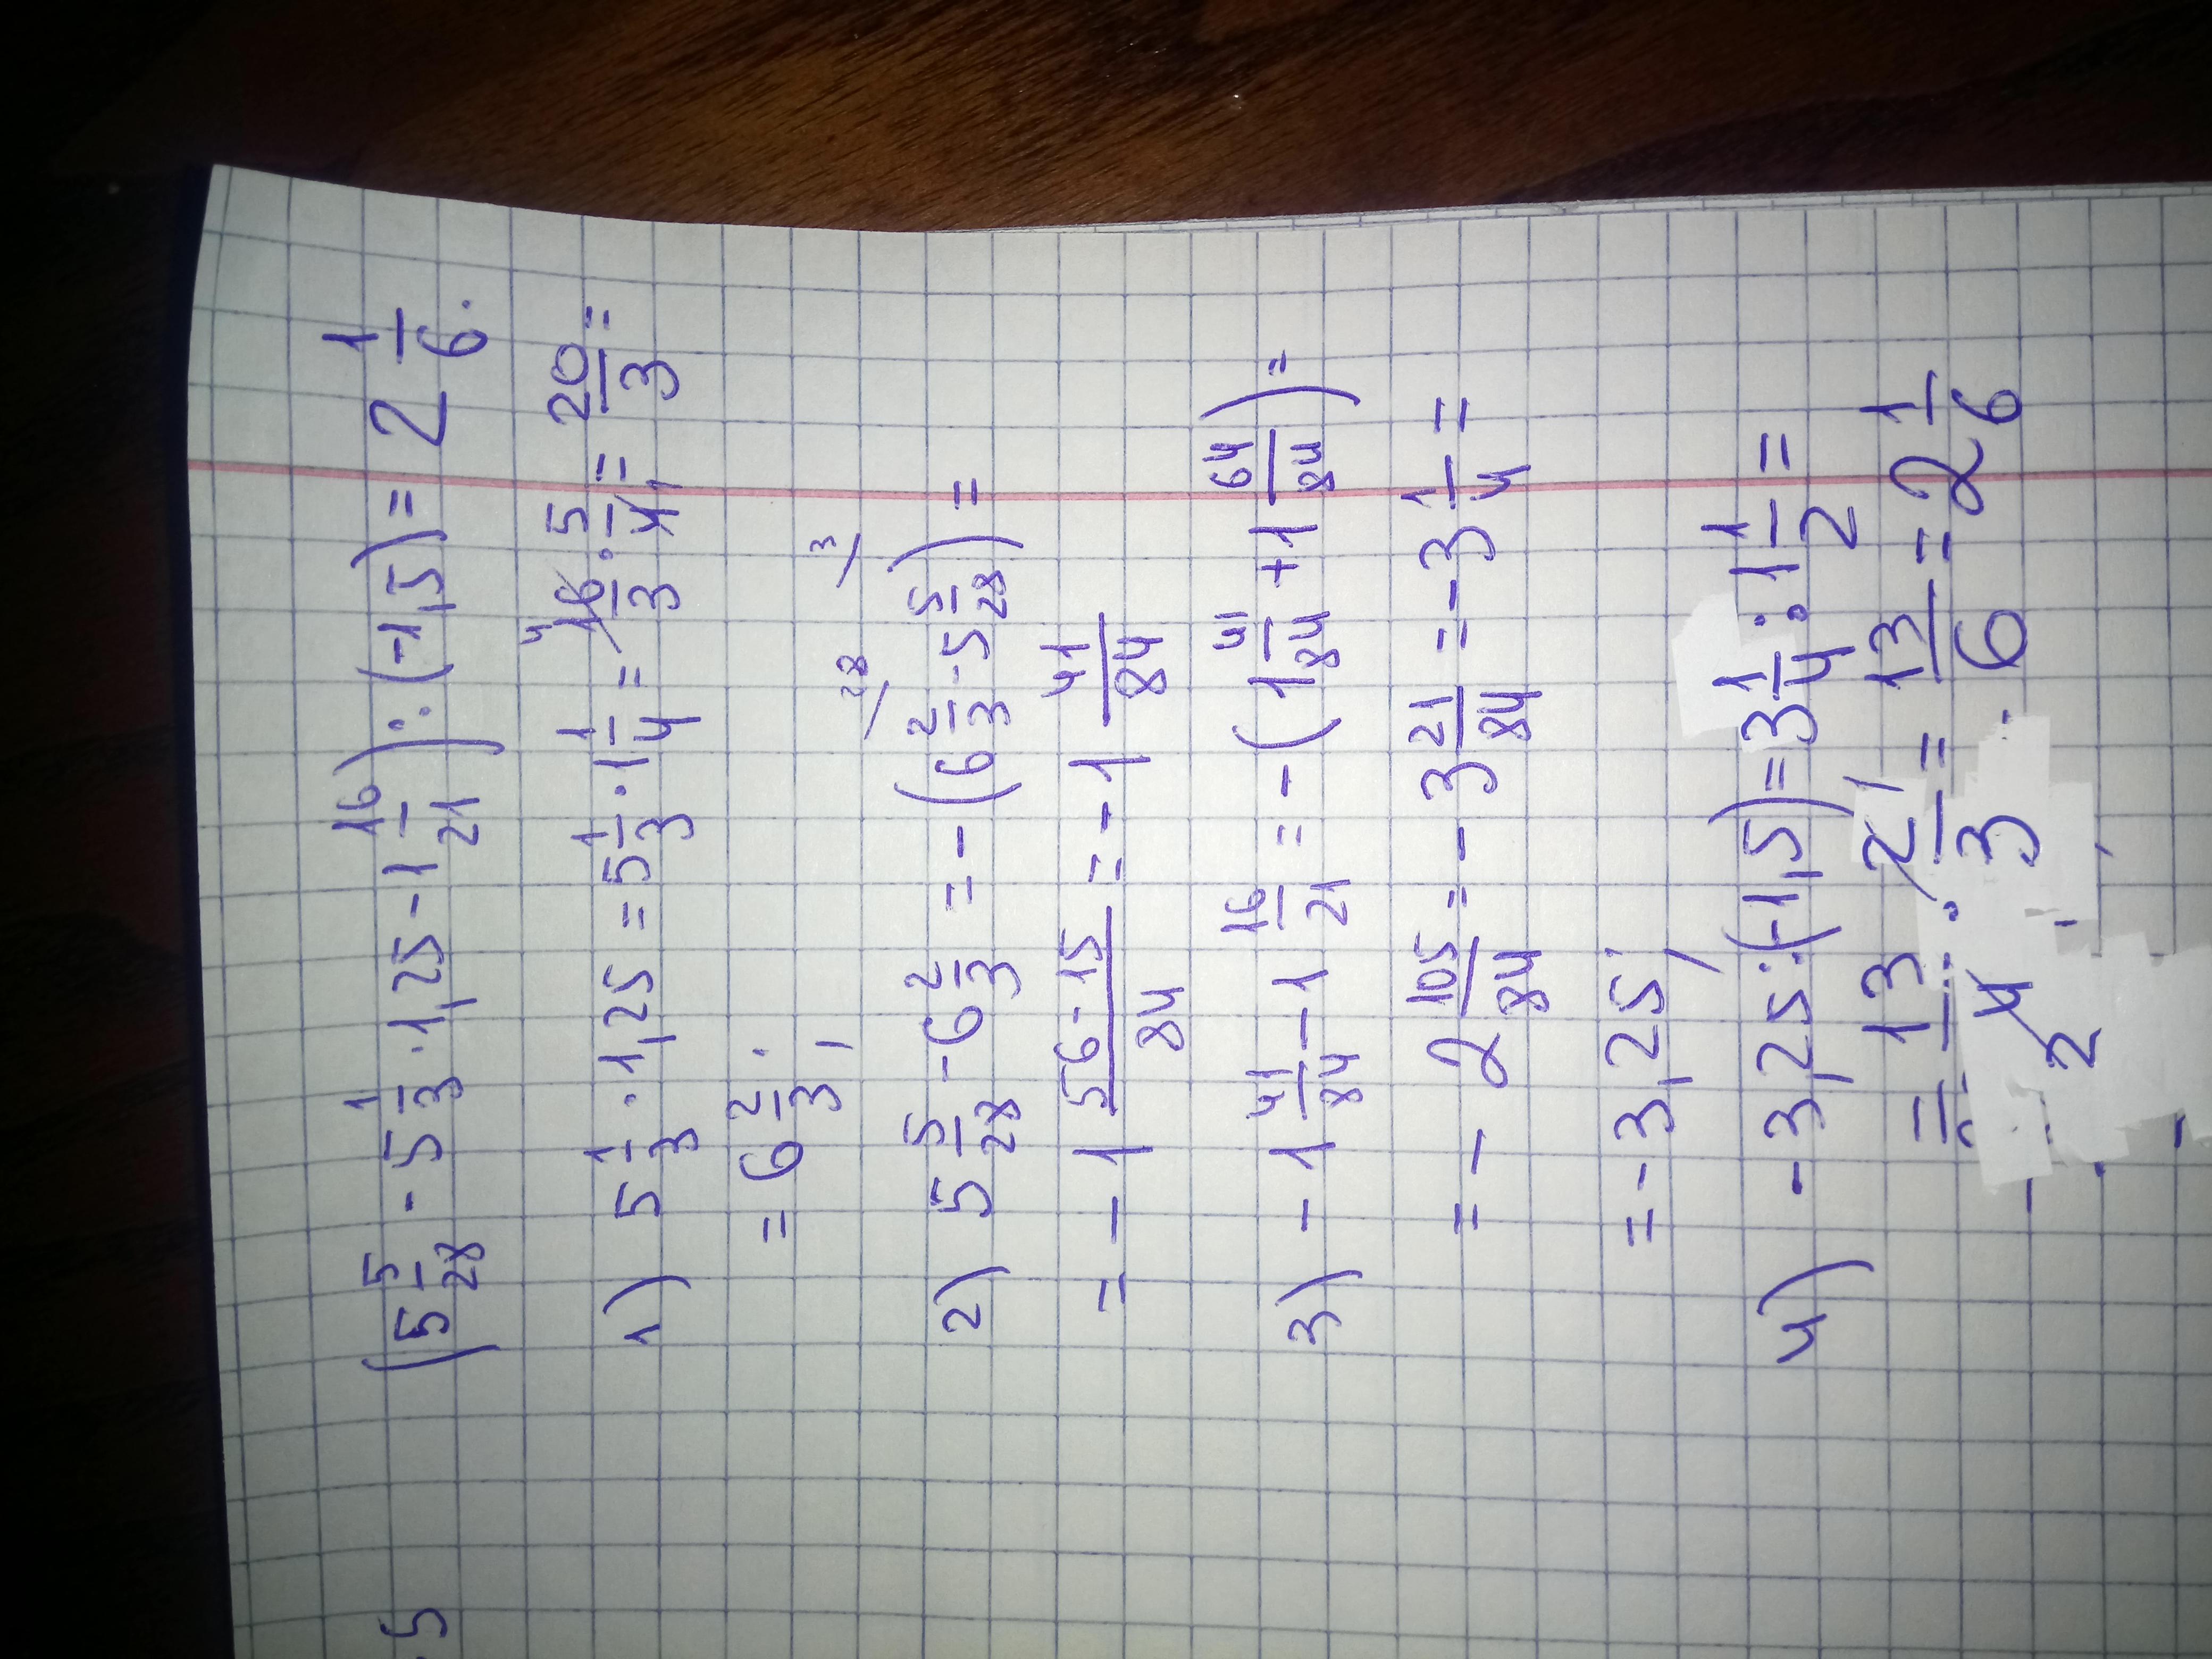 5
(5 5/28 - 5 1/3 · 1,25 - 1 16/21) : (-1,5) = 2 1/6.
1) 5 1/3 · 1,25 = 5 1/3 · 1 1/4 = 16/3 · 5/4 = 20/3 =
4 1
= 6 2/3;
28 3
2) 5 5/28 - 6 2/3 = - (6 2/3 - 5 5/28) =
= - 1 56-15/84 = - 1 41/84
3) - 1 41/84 - 1 16/21 = - (1 41/84 + 1 64/84) =
= - 2 105/84 = - 3 21/84 = - 3 1/4 =
= - 3,25;
4) - 3,25 : (-1,5) = 3 1/4 : 1 1/2 =
= 13/4 · 2/3 = 13/6 = 2 1/6
2 1